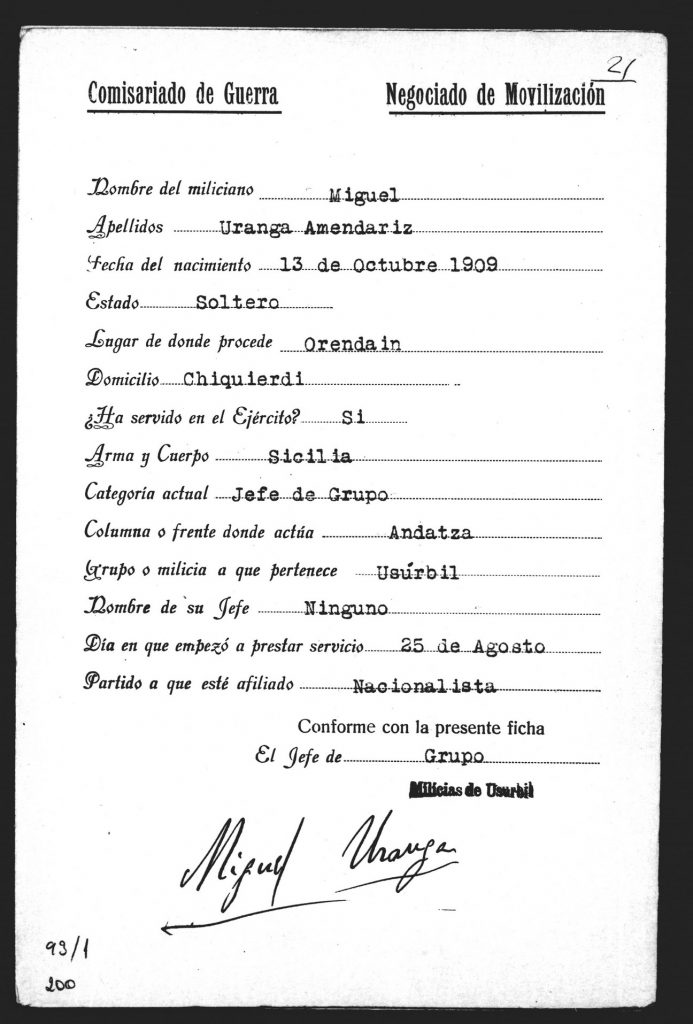 21
Comisariado de Guerra Negociado de Movilización
Nombre del miliciano Miguel
Apellidos Uranga Amendariz
Fecha del nacimiento 13 de Octubre 1909
Estado Soltero
Lugar de donde procede Orendain
Domicilio Chiquierdi
¿Ha servido en el Ejército? Si
Arma y Cuerpo Sicilia
Categoría actual Jefe de Grupo
Columna o frente donde actúa Andatza
Grupo o milicia a que pertenece Usúrbil
Nombre de su Jefe Ninguno
Día en que empezó a prestar servicio 25 de Agosto
Partido a que esté afiliado Nacionalista
Conforme con la presente ficha
El Jefe de Grupo
Milicias de Usurbil
Miguel Uranga
93/1
200